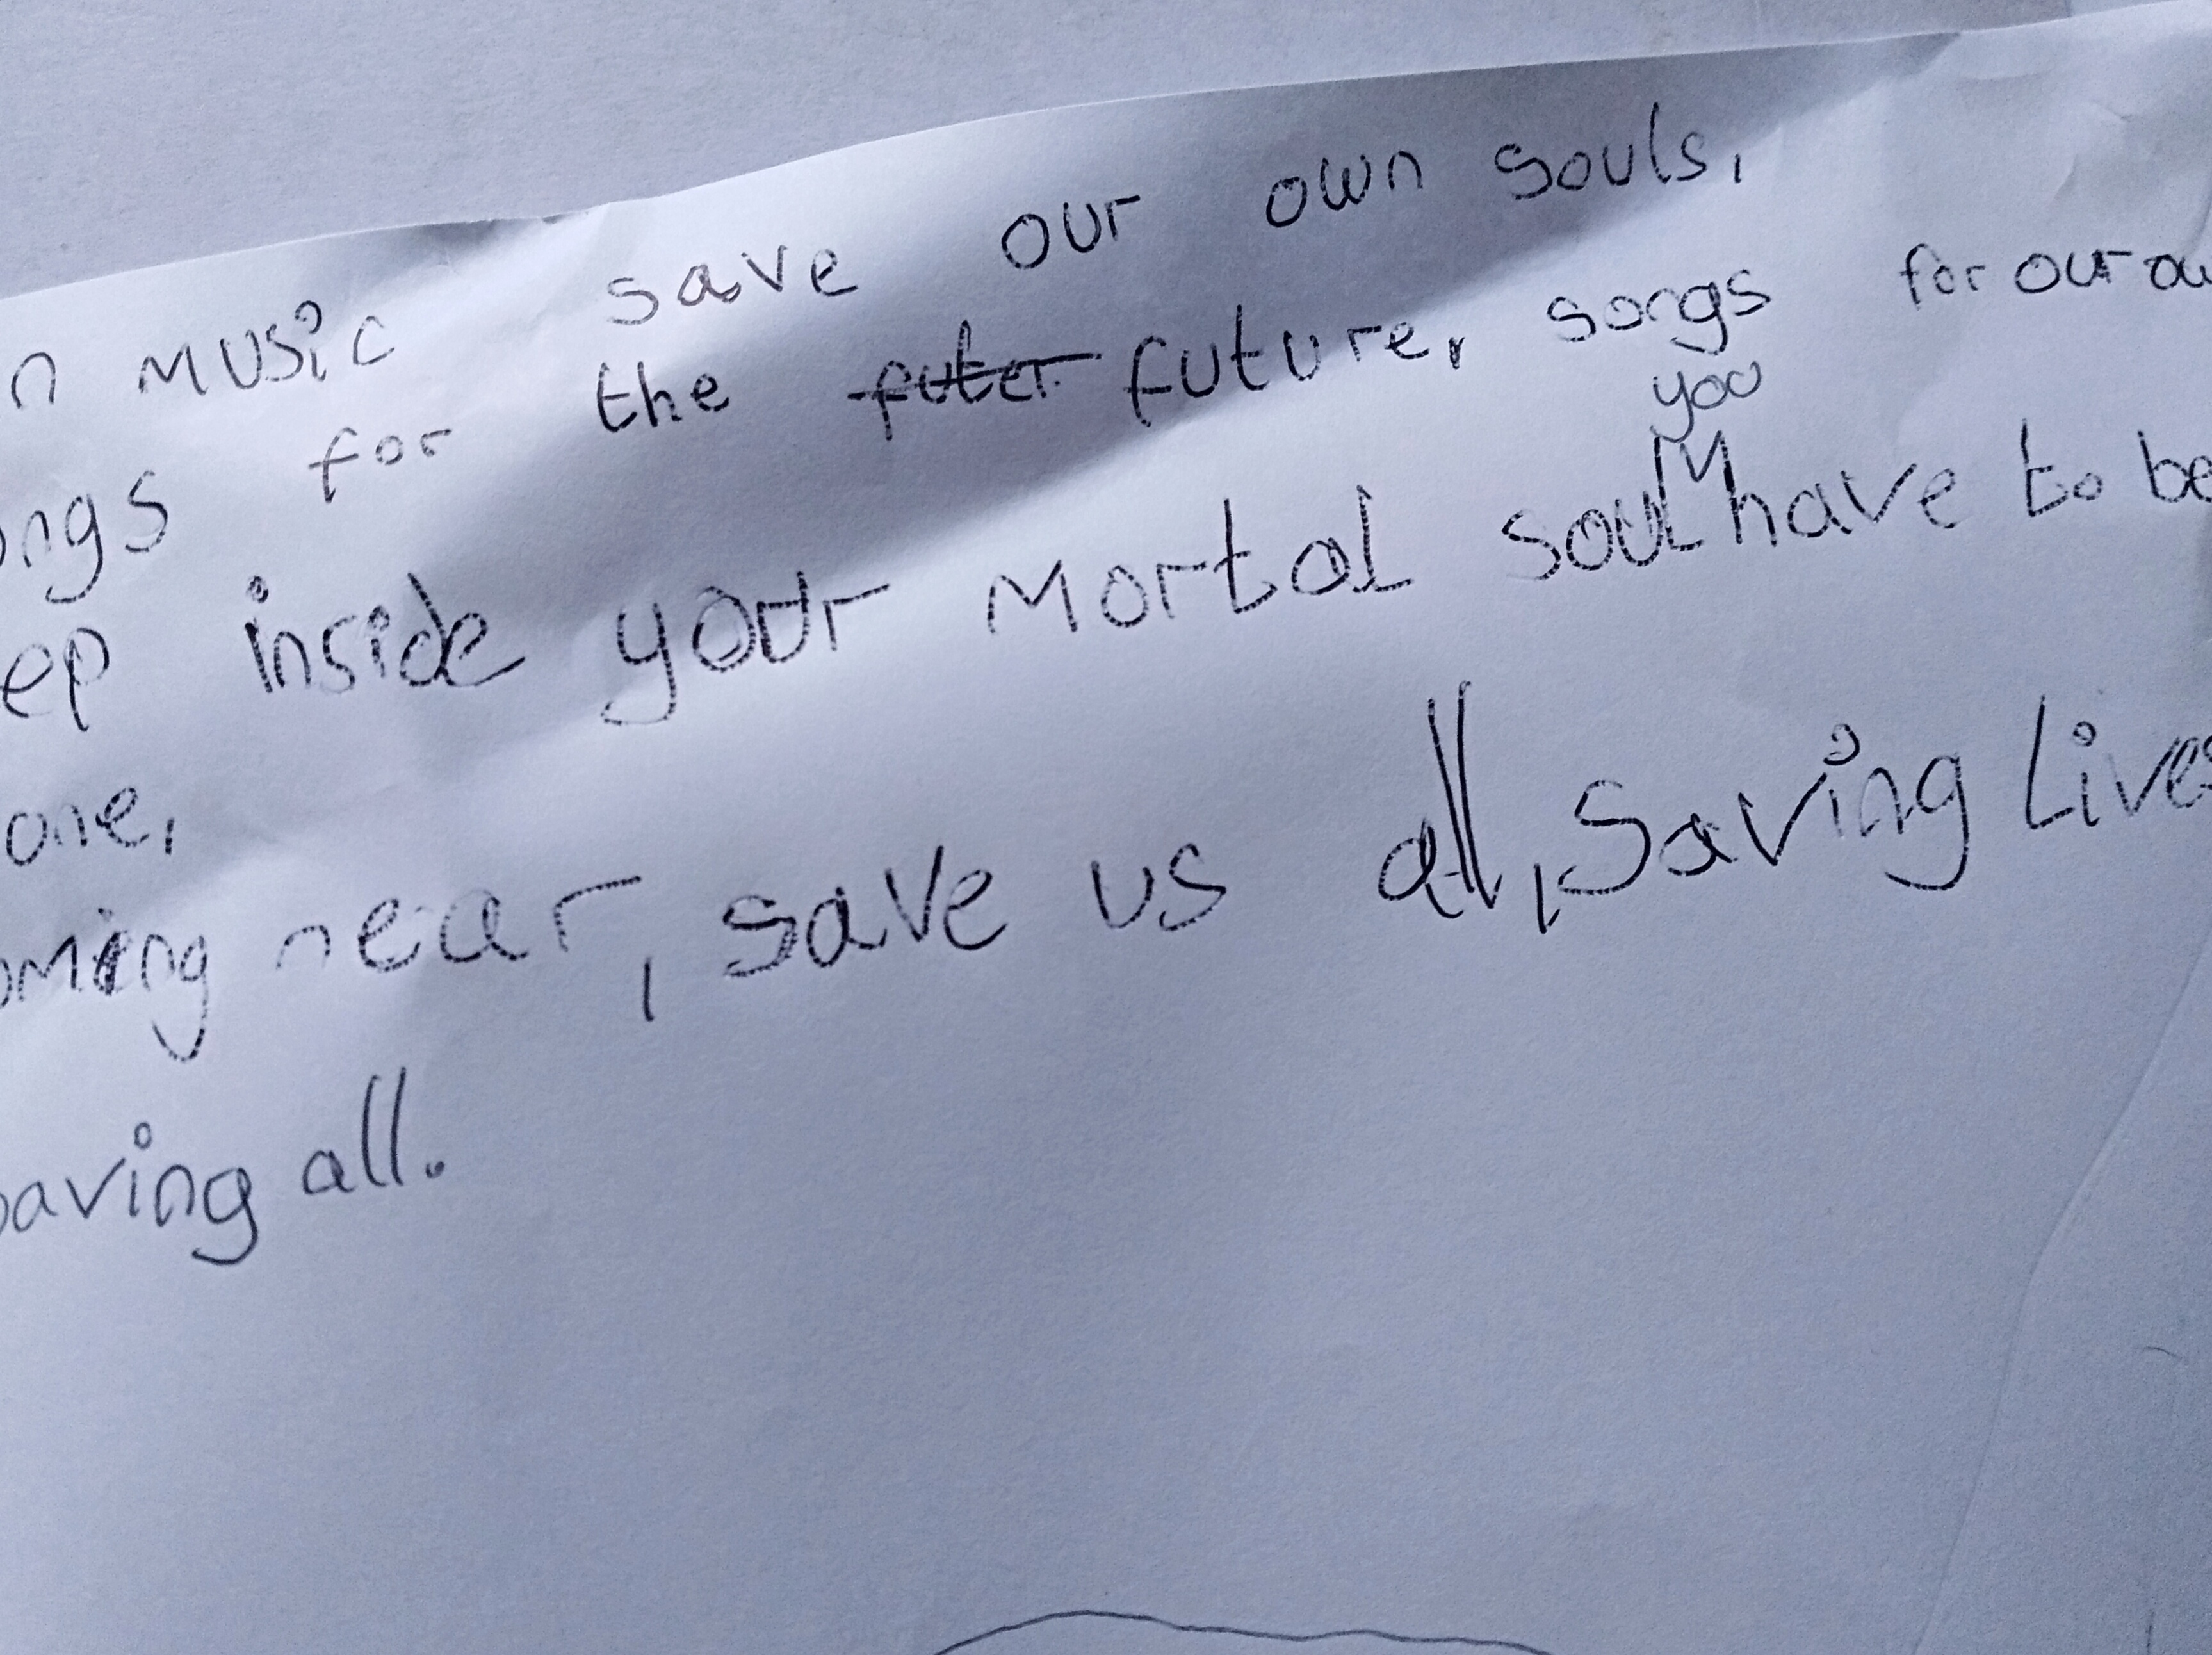 n music save our own souls,
ngs for the futer future, songs for our ow
ep inside your mortal soul you have to be
one,
oming near, save us all, Saving Lives
aving all.